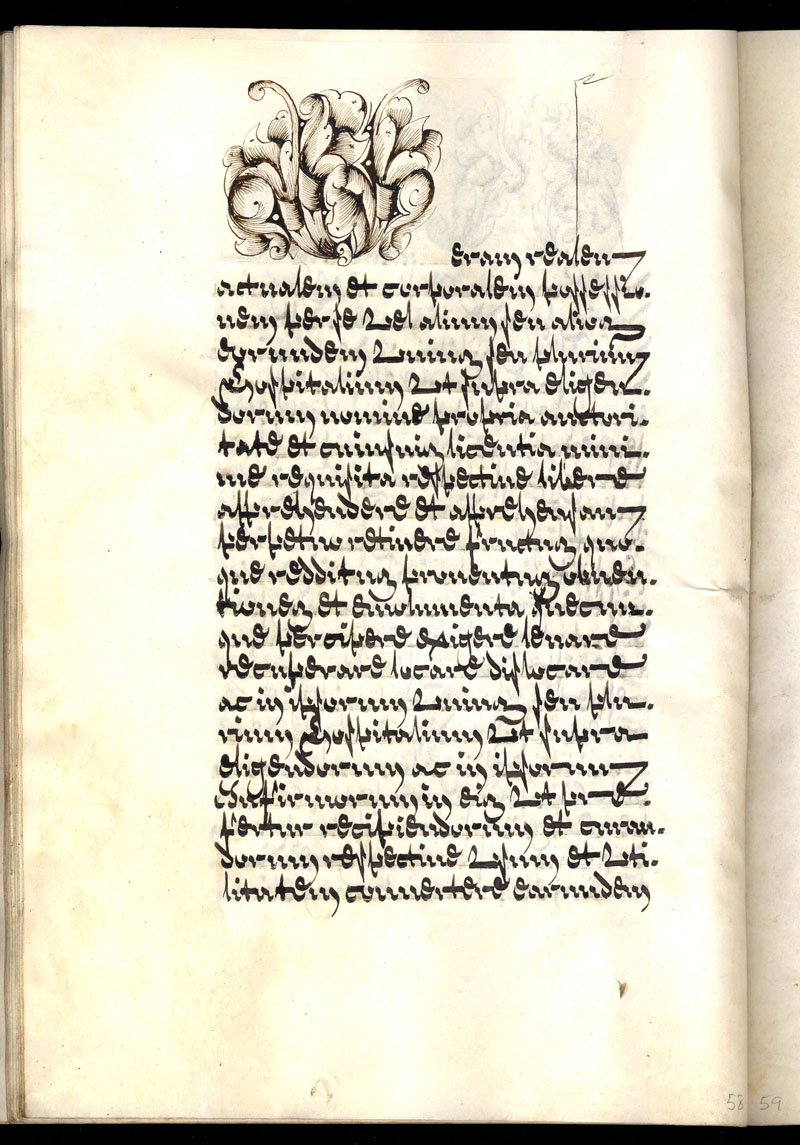 eram realem
actualem et corporalem possessio.
nem per se vel alium seu alios
eorundem unius seu plurium
Hospitalium ut supra eligen.
dorum nomine propria auctori.
tate et cuiusvis licentia mini.
me requisita respective libere
apprehendere et apprehensam
perpetuo retinere fructus quo.
que redditus proventus obven.
tiones et emolumenta quecun.
que percipere exigere levare
recuperare locare dislocare
ac in ipsorum unius seu plu.
rium Hospitalium ut supra
eligendorum ac in ipsorum
infirmorum in eis ut pre.
fertur recipiendorum et curan.
dorum respective usum et uti.
litatem convertere earundem
58 59